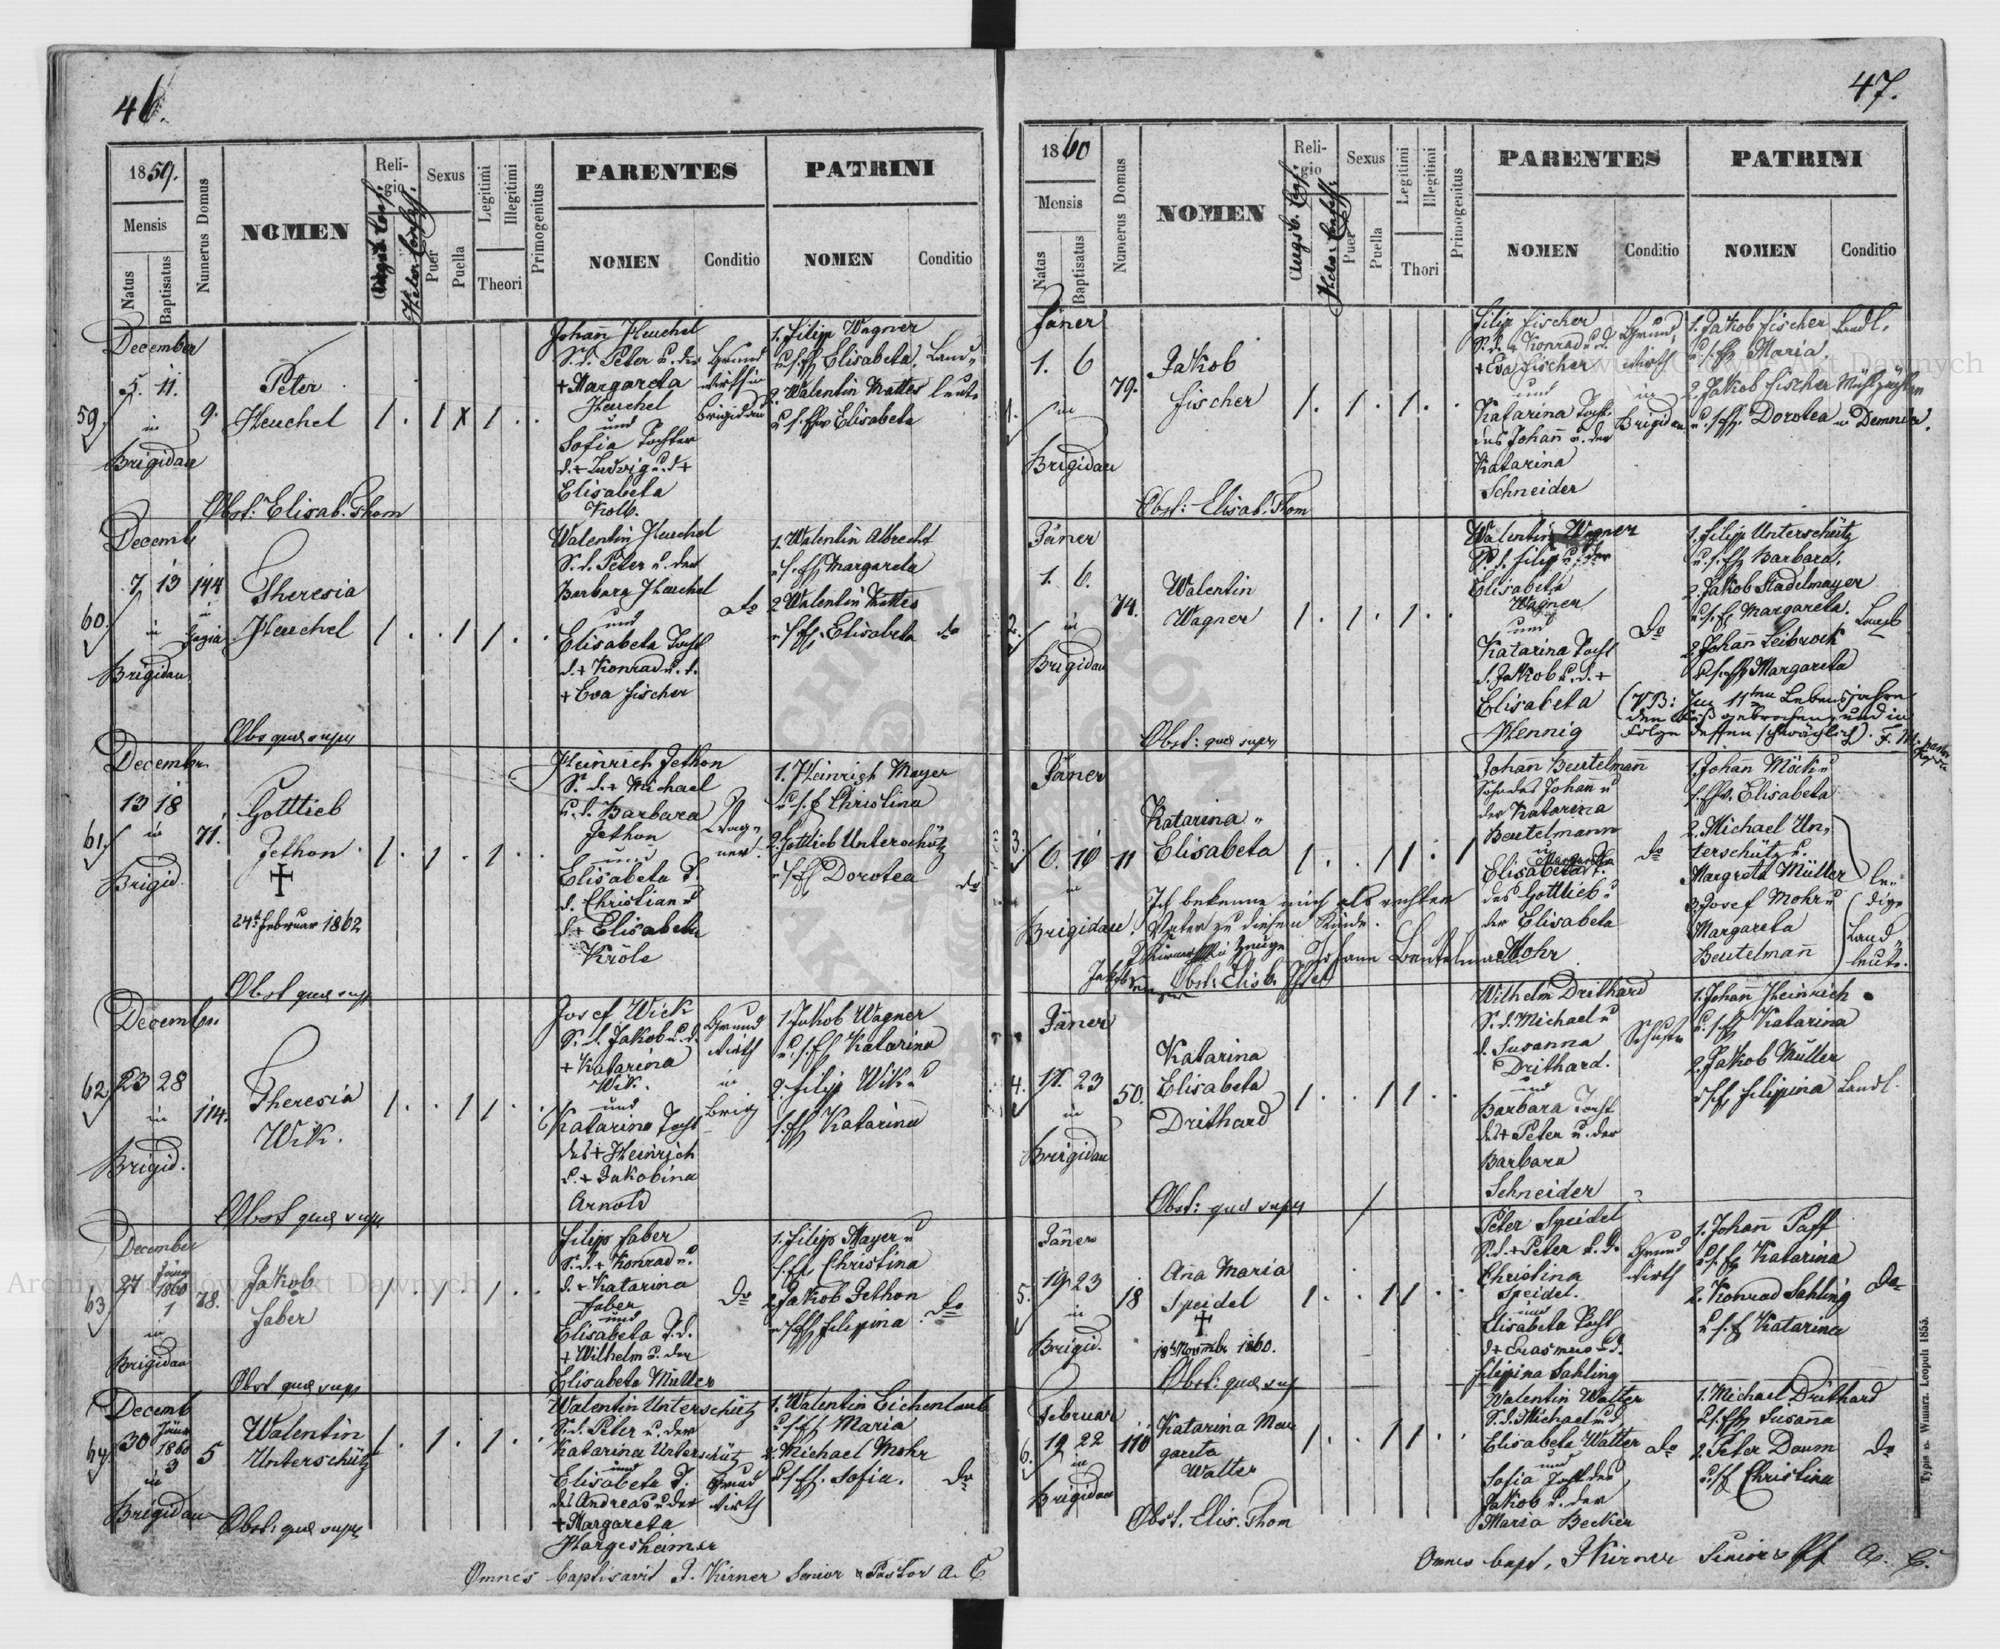 46.
1859.
Mensis
Natus
Baptisatus
Numerus Domus
NOMEN
Religio
Augsb. Conf.
Helv. Confess.
Sexus
Puer
Puella
Legitimi
Illegitimi
Thori
Primogenitus
PARENTES
NOMEN
Conditio
PATRINI
NOMEN
Conditio
59.
December
5. 11.
in
Brigidau
9.
Peter
Heuchel
1 . 1 X 1 . .
Johann Heuchel
S. d. Peter u. der
+ Margareta
Heuchel
und
Sofia Tochter
d. + Ludwig u. d. +
Elisabeta
Kolb.
Grund
wirth in
Brigidau
1. Filip Wagner
u. s. Ehf Elisabeta.
2. Walentin Mattes
u. s. Ehf Elisabeta
Land-
leute
Obst: Elisab. Thom
60.
Decemb
7 13
in
Brigidau
144
Theresia
Heuchel
1 . . 1 1 . .
Walentin Heuchel
S. d. Peter u. der
Barbara Heuchel
und
Elisabeta Tocht
d. + Konrad u. d.
+ Eva Fischer
do
1. Walentin Albrecht
u. s. Ehf Margareta
2 Walentin Mattes
u s. Ehf. Elisabeta
do
Obs quae supr
61.
Decembr.
13 18
in
Brigid.
71.
Gottlieb
Jethon
†
24t Februar 1862
1 . 1 . 1 . .
Heinrich Jethon
S. d. + Michael
u. d. Barbara
Jethon
und
Elisabeta T.
d. Christian u
d + Elisabeta
Kröls
Wag-
ner.
1. Heinrich Mayer
u. s. E Christina
2. Gottlieb Unterschütz
u s Ehf Dorotea
do
Obst quae supr
62.
Decembr.
23 28
in
Brigid.
114.
Theresia
Wik.
1 . . 1 1 .
Josef Wick
S. d. Jakob u. d.
+ Katarina
Wik.
und
Katarina Tocht
des + Heinrich
u. + Jakobina
Arnold
Grund
wirth
in
Brig
1. Jakob Wagner
u. s. Ehf Katarina
2. Filip Wik u
s. Ehf Katarina
Obst quae supr
63.
December
27 Jäner
1860
1
in
Brigidau
78.
Jakob
Faber
1 . 1 . 1 . .
Filip Faber
S. d. + Konrad u.
d. + Katarina
Faber
und
Elisabeta T. d.
+ Wilhelm u. der
Elisabeta Müller
Do
1. Filip Mayer u
s. Ehf Christina
2. Jakob Jethon
u s Ehf Filipina
Do
Obst quae supr
64.
Decemb
30 Jäner
1860
3
in
Brigidau
5
Walentin
Unterschütz
1 . 1 . 1 . .
Walentin Unterschütz
S. d. Peter u. der
Katarina Unterschütz
und
Elisabeta T.
des Andreas u der
+ Margareta
Hargesheimer
Grund
wirth
1. Walentin Eichenlaub
u. s. Ehf Maria
2. Michael Mohr
u s Ehf. Sofia.
Do
Obst: quae supr
Omnes baptisavit J. Kirner Senior & Pastor A. C
47.
1860
Mensis
Natus
Baptisatus
Numerus Domus
NOMEN
Religio
Augsb. Conf.
Helv. Confess.
Sexus
Puer
Puella
Legitimi
Illegitimi
Thori
Primogenitus
PARENTES
NOMEN
Conditio
PATRINI
NOMEN
Conditio
1.
Jäner
1. 6
in
Brigidau
79.
Jakob
Fischer
1 . 1 . 1 . .
Filip Fischer
S. d. + Konrad u. d.
+ Eva Fischer
und
Katarina Tocht.
des Johann u. der
Katarina
Schneider
Grund-
wirth
in
Brigidau
1. Jakob Fischer
u. s. Ehf Maria.
Landl.
2. Jakob Fischer
u. s. Ehf. Dorotea
in Demnia.
Obst: Elisab. Thom
2.
Jäner
1. 6.
in
Brigidau
74.
Walentin
Wagner
1 . 1 . 1 . .
Walentin Wagner
S. d. Filip u. der
Elisabeta
Wagner
und
Katarina Tocht
d. Jakob u. d. +
Elisabeta
Hennig
Do
1. Filip Unterschütz
u. s. Ehf Barbara.
2. Jakob Stadelmayer
u. s. E Margareta.
3. Johann Leibrock
u. s. Ehf Margareta
Landl
(NB: Im 11ten Lebensjahre
den Fuß gebrochen und in
Folge dessen schwächlich).
Obst: quae supr.
3.
Jäner
6. 10
in
Brigidau.
11
Katarina
Elisabeta
1 . . 1 1 . 1
Johann Beutelmann
Sohn des Johann u
der Katarina
Beutelmann
u
Elisabeta Margaretha T.
des Gottlieb u
der Elisabeta
Mohr
do
1. Johann Möck u
s. Ehf. Elisabeta
2. Michael Un-
terschütz u.
Margreta Müller
3. Josef Mohr u
Margareta
Beutelmann
le-
dige
Land-
leute.
Ich bekenne mich als rechten
Vater zu diesem Kinde.
Johann Beutelmann
J Kirner als Zeuge
Obst: Elisb.
4.
Jäner
17. 23
in
Brigidau
50.
Katarina
Elisabeta
Drithard
1 . . 1 1 . .
Wilhelm Drithard
S. d. Michael u
d. Susanna
Drithard.
und
Barbara Tocht
des + Peter u. der
Barbara
Schneider
Schuster
1. Johann Heinrich
u. s. Ehf Katarina
2. Jakob Müller
u s Ehf Filipina
Landl.
Obst: quae supr
5.
Jäner
19. 23
in
Brigid.
18
Ana Maria
Speidel
†
18t Novembr 1860.
1 . . 1 1 . .
Peter Speidel
S. d. + Peter u. d.
Christina
Speidel.
und
Elisabeta Tocht
d + Erasmus u d.
Filipina Sahling
Grund
wirth
1. Johann Paff
u. s. Ehf Katarina
2. Konrad Sahling
u s. E Katarina
Do
Obst: quae sup
6.
Februar
19 22
in
Brigidau
110
Katarina Mar
gareta
Walter
1 . . 1 1 . .
Walentin Walter
S. d. Michael u d.
Elisabeta Walter
und
Sofia Tocht des
Jakob u. der
Maria Becker
do
1. Michael Drithard
u. s. Ehf Susana
2. Peter Daum
u. s Ehf Christina
Do
Obst. Elis. Thom
Omnes bapt. J Kirner Senior & Pf A. C.
Typis n. Winiarz. Leopoli 1855.
Archiwum Główne Akt Dawnych
Archiwum Główne Akt Dawnych